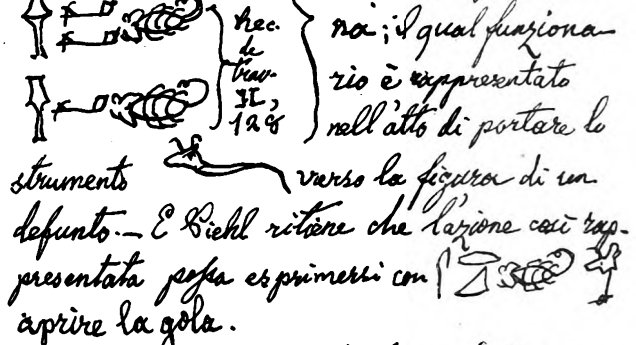 Rec. na; il qual funziona-
de
trav. rio è rappresentato
II,
128 nell'atto di portare lo
strumento verso la figura di un
defunto.— E Piehl ritiene che l'azione così rap-
presentata possa esprimersi con
aprire la gola.